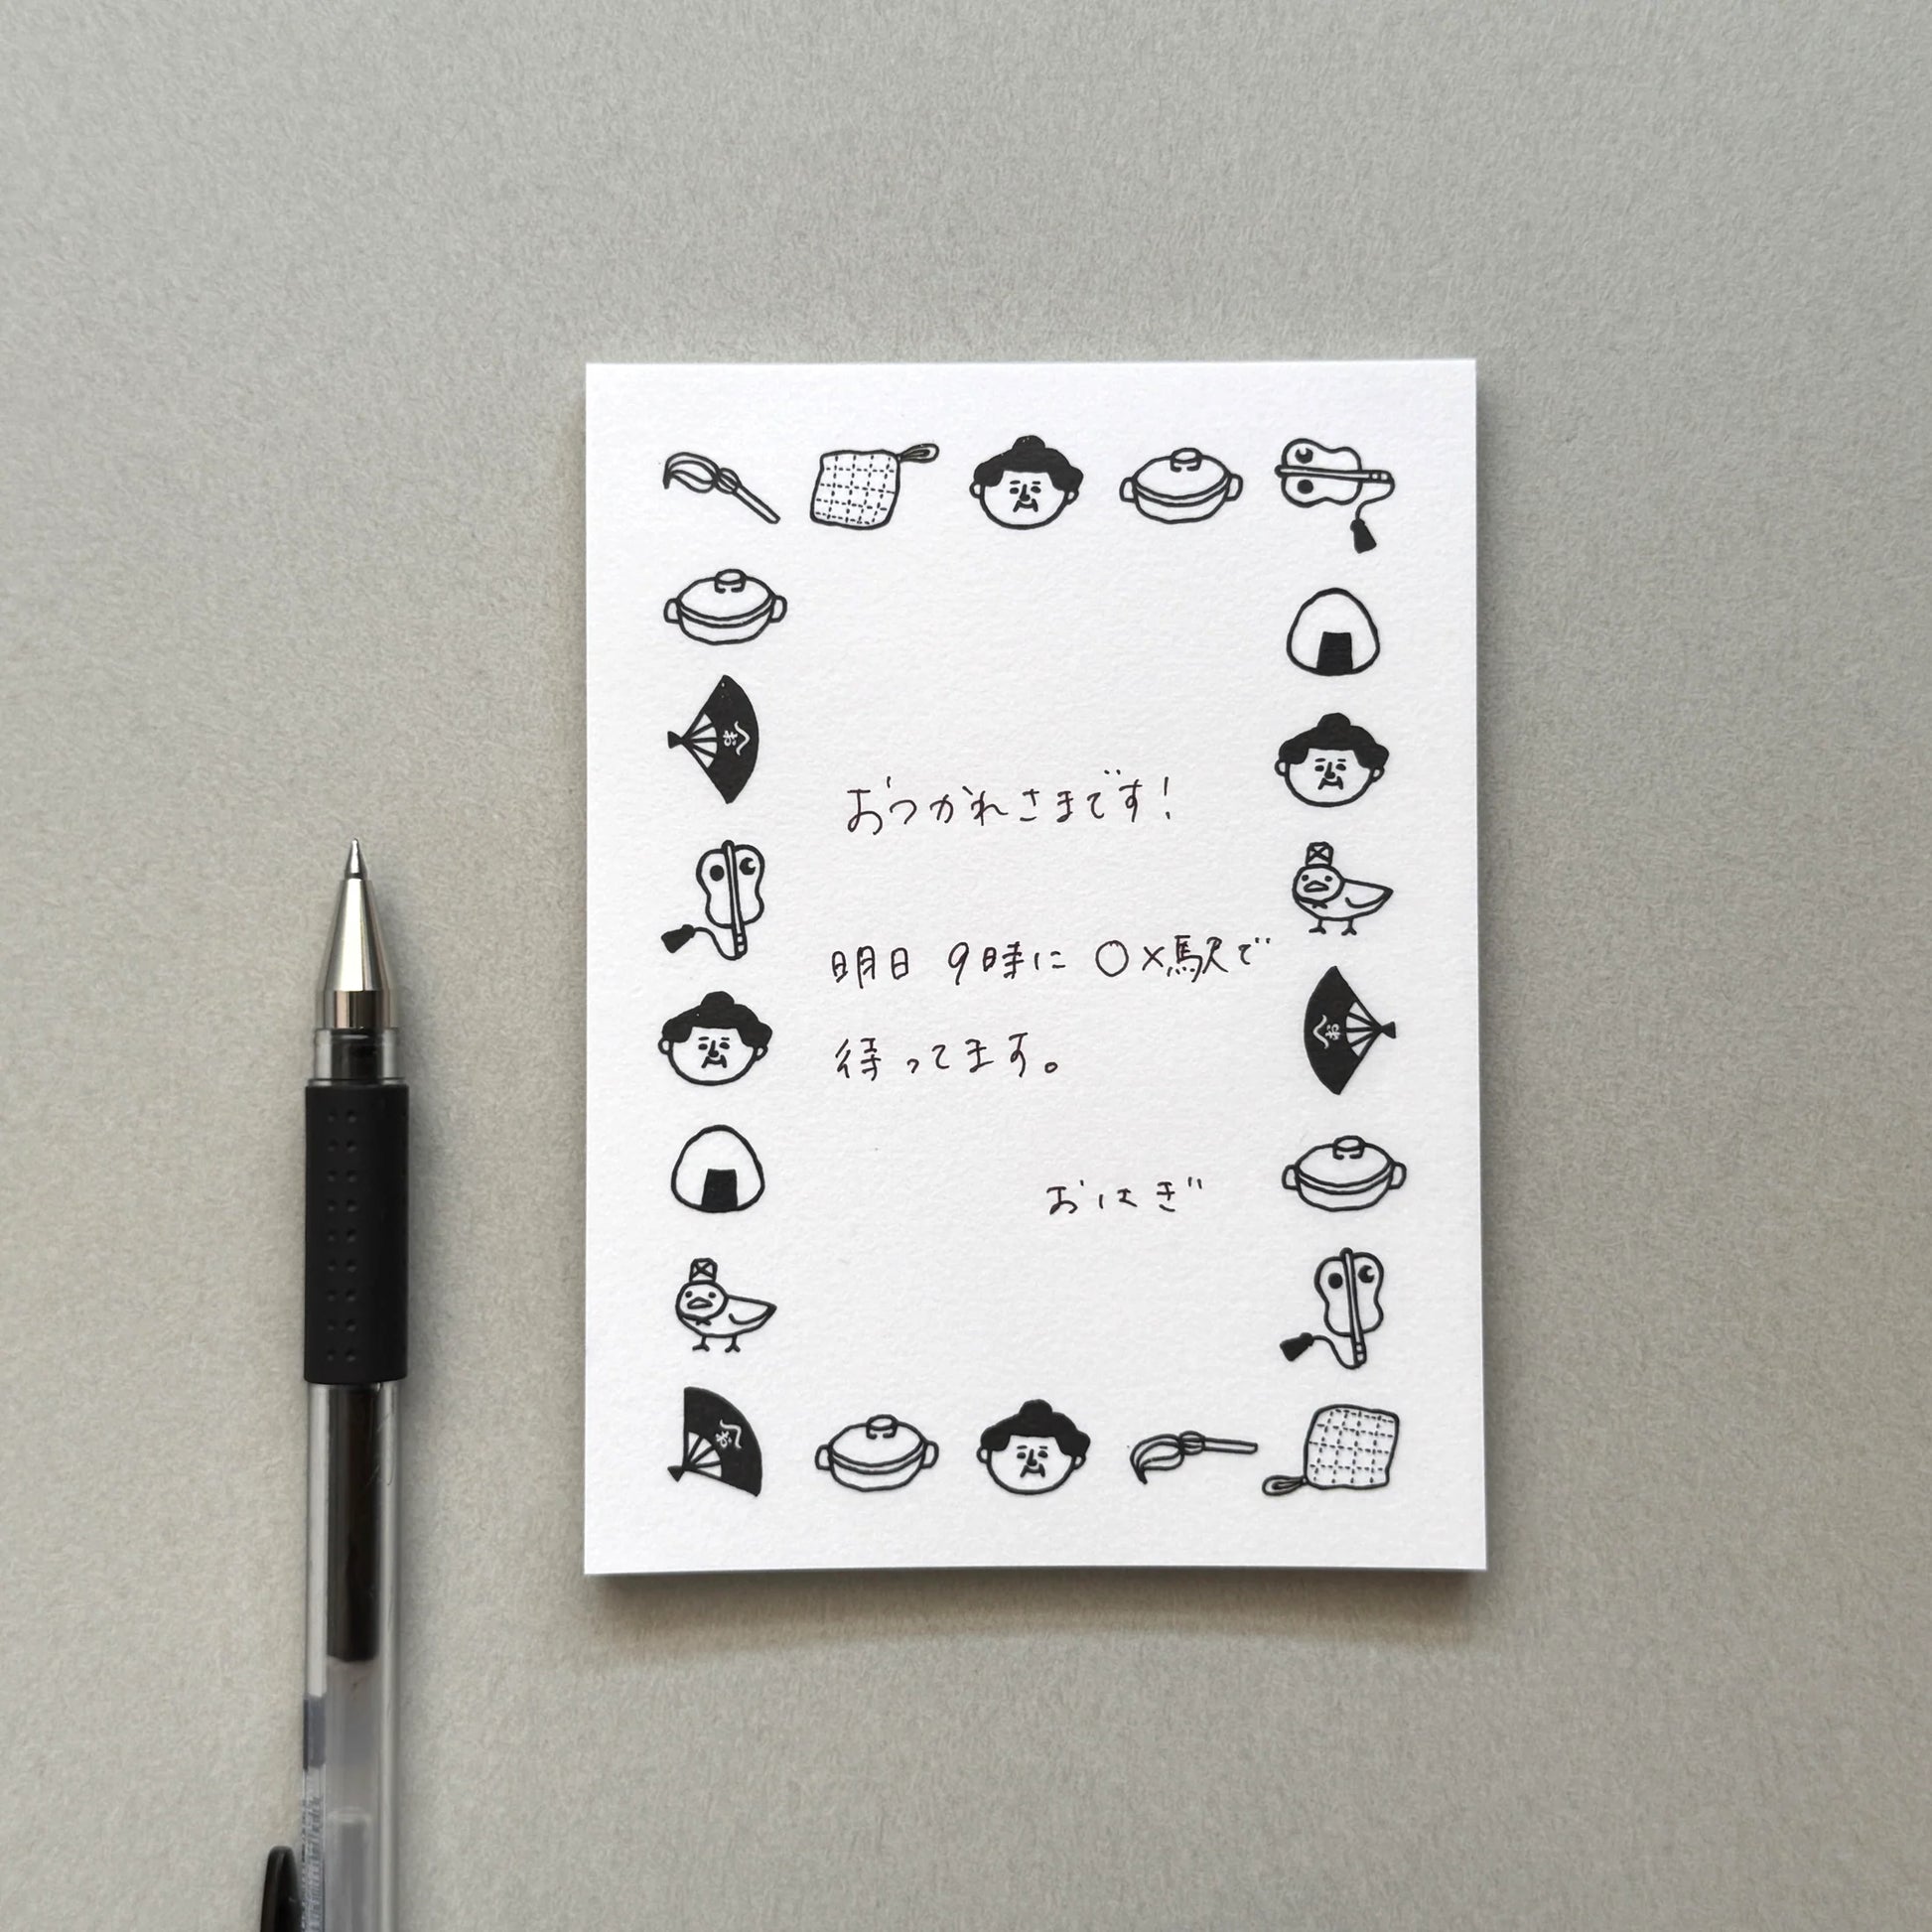 おつかれさまです！
明日 9時に ○×駅で
待ってます。
おはぎ